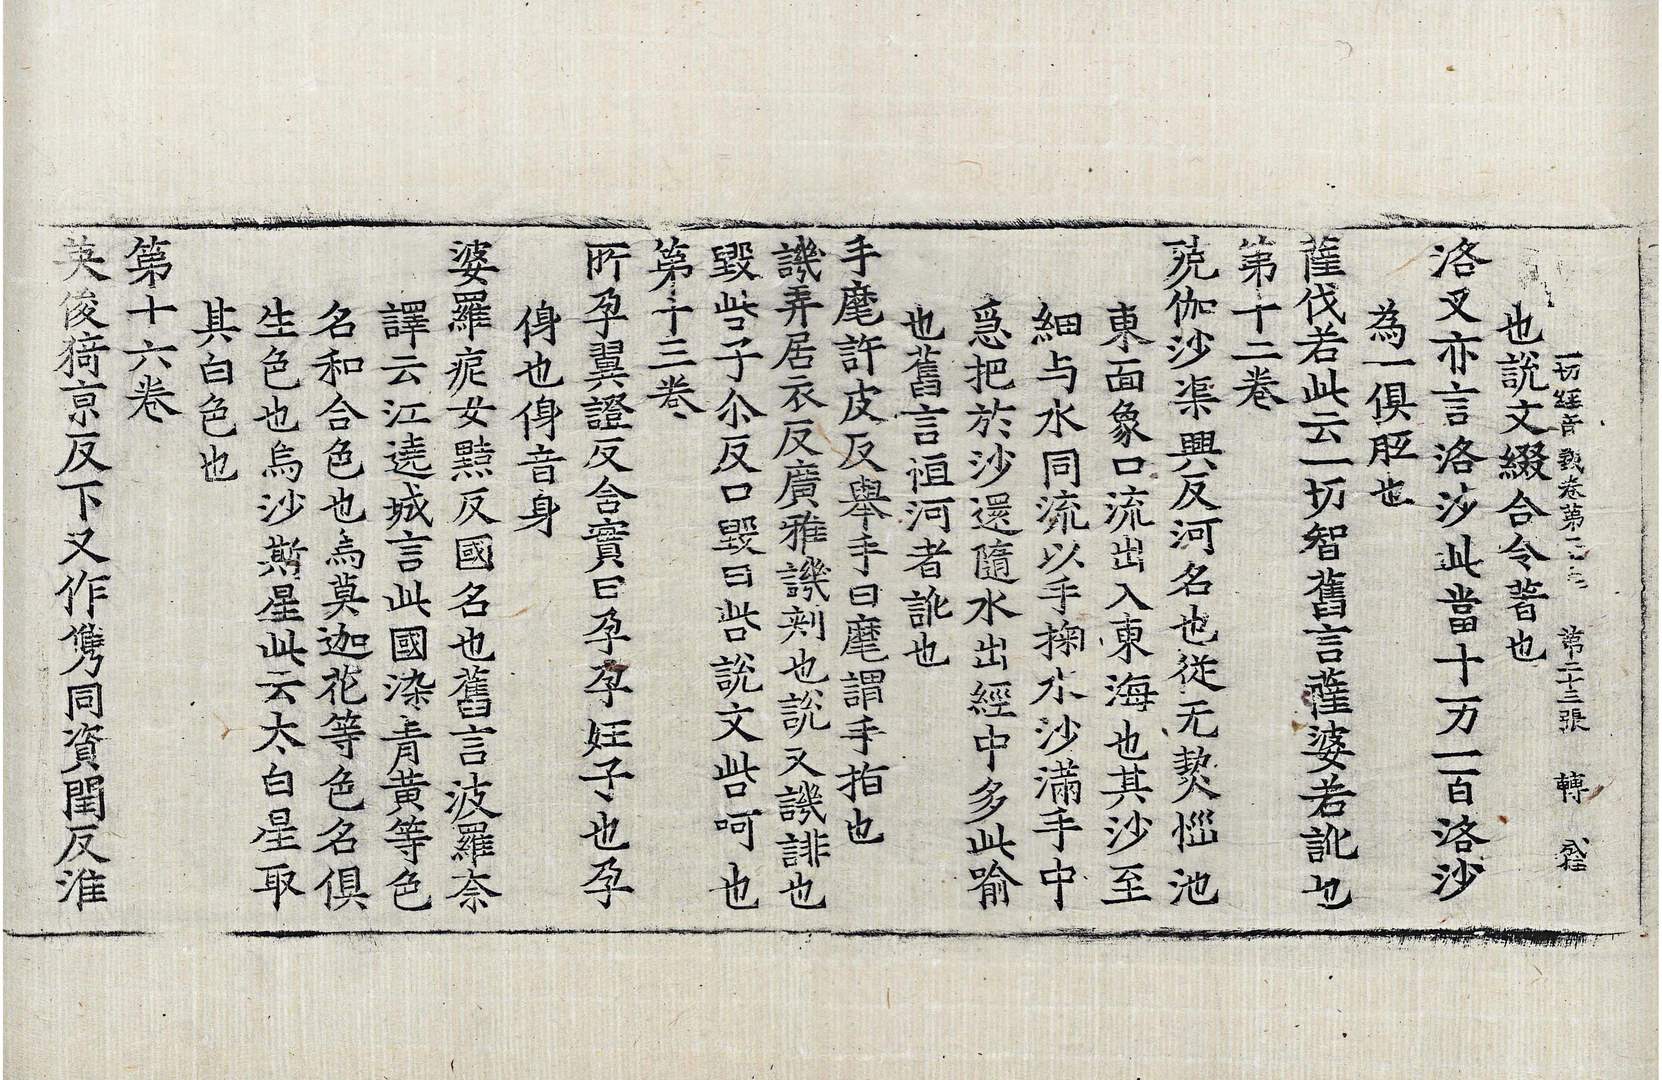 一切経音義卷第二 第二十三張 轉
也說文綴合令著也
洛叉亦言洛沙此當十万一百洛沙
為一俱胝也
薩伐若此云一切智舊言薩婆若訛也
第十二卷
殑伽沙渠興反河名也從无熱惱池
東面象口流出入東海也其沙至
細与水同流以手掬水沙滿手中
爲把於沙還隨水出經中多此喻
也舊言恒河者訛也
手麾許皮反舉手曰麾謂手指也
譏弄居衣反廣雅譏刾也說文譏誹也
毀呰子尒反口毀曰呰說文呰呵也
第十三卷
所孕翼證反含實曰孕孕妊子也孕
㑗也㑗音身
婆羅痆女黠反國名也舊言波羅奈
譯云江遶城言此國染青黃等色
名和合色也為莫迦花等色名俱
生色也烏沙斯星此云太白星取
其白色也
第十六卷
英俊猗京反下又作儁同資閏反淮